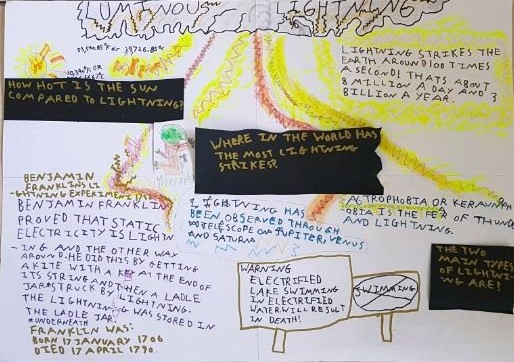 LUMINOUS LIGHTNING
HOW HOT IS THE SUN
COMPARED TO LIGHTNING?
LIGHTNING STRIKES THE
EARTH AROUND 100 TIMES
A SECOND! THATS ABOUT
8 MILLION A DAY AND 3
BILLION A YEAR.
WHERE IN THE WORLD HAS
THE MOST LIGHTNING
STRIKES?
BENJAMIN
FRANKLINS LI
-GHTNING EXPERIMENT
BENJAMIN FRANKLIN
PROVED THAT STATIC
ELECTRICITY IS LIGHTN
-ING AND THE OTHER WAY
AROUND. HE DID THIS BY GETTING
A KITE WITH A KEY AT THE END OF
ITS STRING AND THEN A LADLE
JAR* STRUCK BY LIGHTNING.
THE LIGHTNING WAS STORED IN
THE LADLE JAR.
*UNDERNEATH
FRANKLIN WAS:
BORN 17 JANUARY 1706
DIED 17 APRIL 1790.
LIGHTNING HAS
BEEN OBSERVED THROUGH
TELESCOPE ON JUPITER, VENUS
AND SATURN
ASTROPHOBIA OR KERAUN
OBIA IS THE FEAR OF THUND
AND LIGHTNING.
WARNING
ELECTRIFIED
LAKE SWIMMING
IN ELECTRIFIED
WATER WILL RESULT
IN DEATH!
SWIMMING
THE TWO
MAIN TYPES
OF LIGHTNI-
NG ARE?